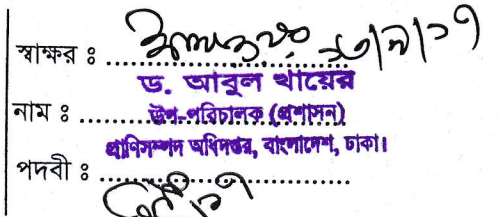 স্বাক্ষর ঃ
ড. আবুল খায়ের
নাম ঃ উপ-পরিচালক (প্রশাসন)
প্রাণিসম্পদ অধিদপ্তর, বাংলাদেশ, ঢাকা।
পদবী ঃ